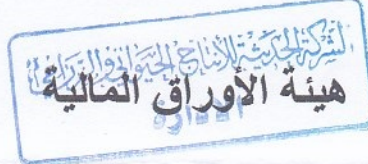 الشركة الحديثة للإنتاج الحيواني والزراعي
هيئة الأوراق المالية
الادارة